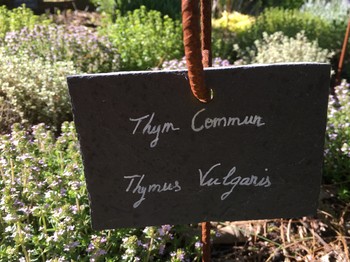 Thym Commun
Thymus Vulgaris